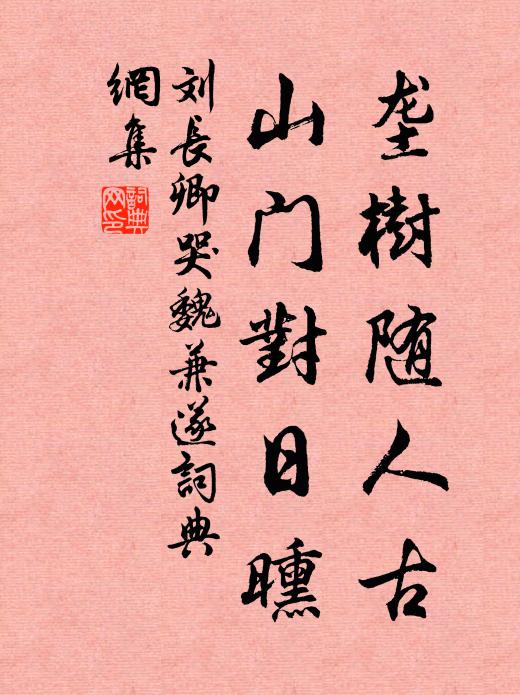 垄樹随人古
山门對日曛
刘長卿哭魏兼遂詞典
網集
詞典
网印